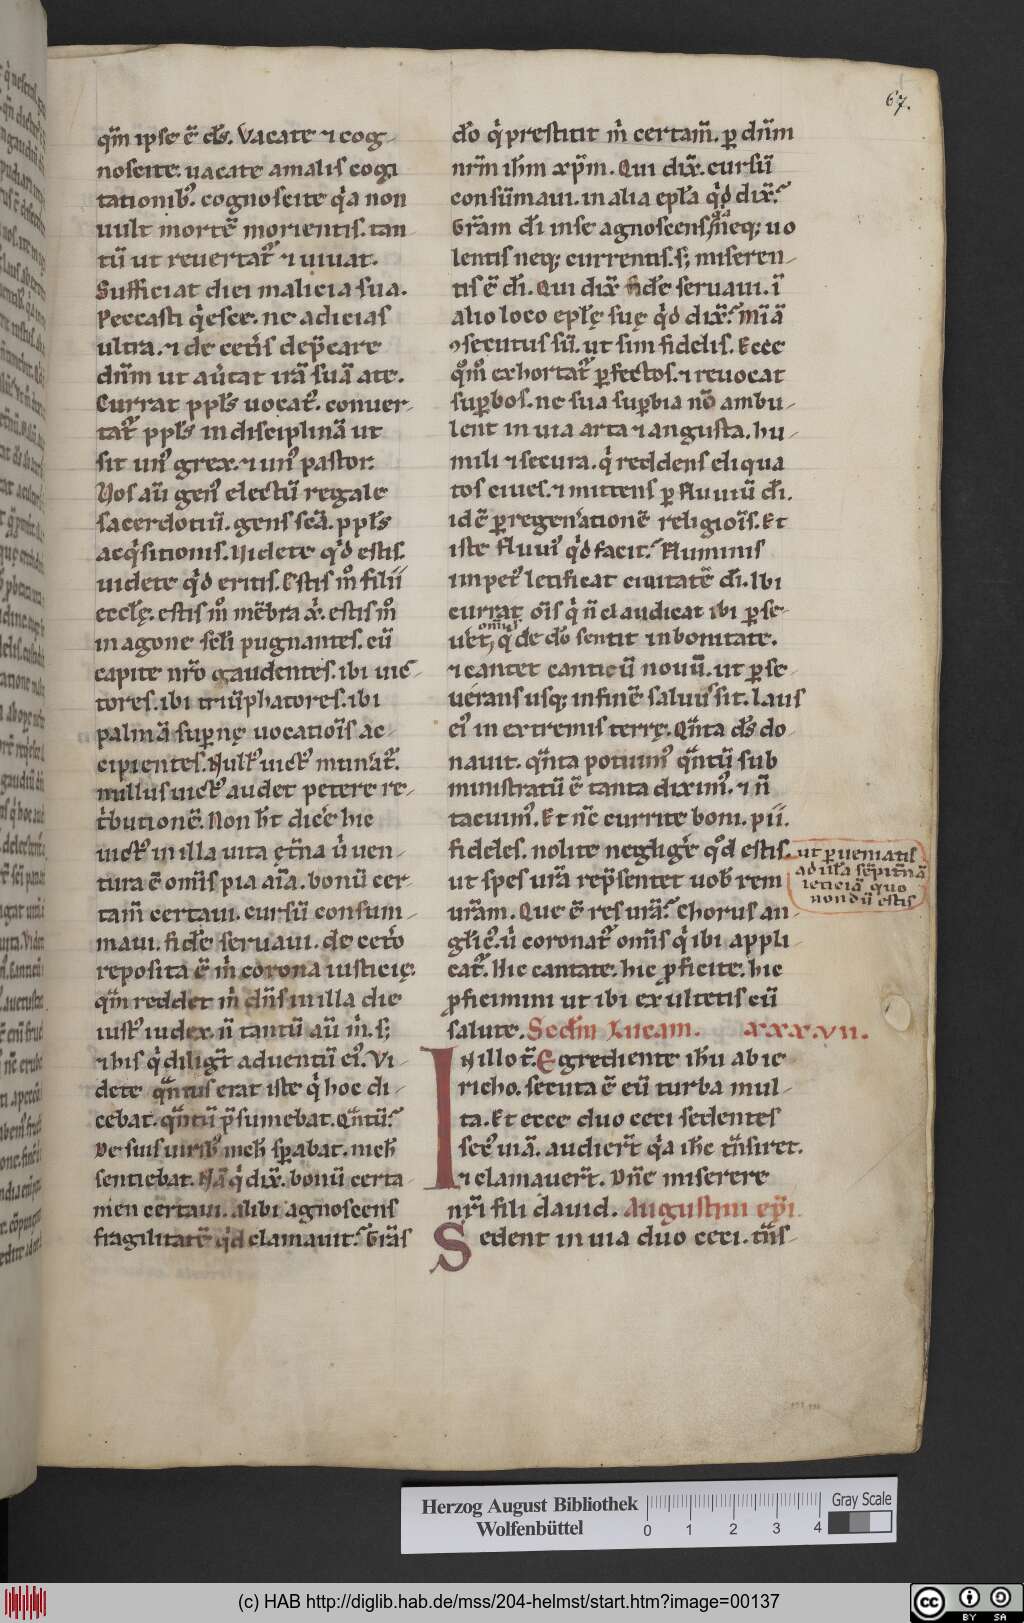 67.
qm̄ ipse ē ds̄. Vacate ⁊ cog-
noscite. uacate a malis cogi
tationib;. cognoscite qⁱa non
uult mortē morientis. tan
tū ut reuertat᷑ ⁊ uiuat.
Sufficiat diei malicia sua.
Peccasti qⁱesce. ne adicias
ultra. ⁊ de cet̄is dep̄care
dn̄m ut au̓tat irā suā a te.
Currat ppl̄s uocat᷒. conuer-
tat᷑ ppl̄s in disciplinā ut
sit un᷒ grex. ⁊ un᷒ pastor.
Uos aū gen᷒ electū regale
sacerdotiū. gens sc̄a. ppl̄s
acqⁱsitionis. Uidete qd̓ estis.
uidete qd̓ eritis. Estis m̊ filii
eccl̄ę. estis m̊ mēbra xp̄i. estis m̊
in agone sc̄li pugnantes. cū
capite nr̄o gaudentes. ibi uic-
tores. ibi triūphatores. ibi
palmā sup̱nę uocatiōis ac-
cipientes. Null᷒ uict᷒ munerat᷑.
nullus uict᷒ audet petere re-
tⁱbutionē. Non h̄t dicēe hic
uict᷒ in illa uita ęt̄na u̓ uen-
tura ē om̄is pia aīa. bonū cer-
tam̄ certaui. cursū consum-
maui. fidē seruaui. de cet̓o
reposita ē m̄ corona iusticię.
qm̄ reddet m̄ dn̄s in illa die
iust᷒ iudex. ñ tantū aū m̄. s;
⁊ his qⁱ diligt̄ aduentū ei᷒. Vi-
dete qᵃntus erat iste qⁱ hoc di-
cebat. qᵃntū p̄sumebat. Qᵃntū?
De suis uirib᷒ nich̄ sp̱abat. nich̄
sentiebat. Nā qⁱ dix̄. bonū certa-
men certaui. alibi agnoscens
fragilitatē qd̓ clamauit? Grās
dō qⁱ prestitit m̄ certam̄. p̱ dn̄m
nr̄m ih̄m xp̄m. Qui dix̄. cursū
consūmaui. in alia epl̄a qd̓ dix̄?
Grām dī in se agnoscens. neq; uo
lentis neq; currentis. s; miseren-
tis ē dī. Qui dix̄ fidē seruaui. ī
alio loco epl̄ę suę qd̓ dix̄? Mīā
ꝯsecutus sū. ut sim fidelis. Ecce
qm̊ exhortat᷑ p̱fectos. ⁊ reuocat
sup̱bos. ne sua sup̱bia nō ambu-
lent in uia arta ⁊ angusta. hu-
mili ⁊ secura. qⁱ reddens eliqua
tos ciues. ⁊ mittens p̱ fluuiū dī.
id ē p̱ regenerationē religiōis. Et
iste fluui᷒ qd̓ facit? Fluminis
impet᷒ letificat ciuitatē dī. Ibi
currat ōis qⁱ ñ claudicat ibi p̱se-
omnis
uēt, qⁱ de dō sentit in bonitate.
⁊ cantet canticū nouū. ut p̱se-
uerans usq; in finē saluus sit. Laus
ei᷒ in extremis terrę. Qᵃnta ds̄ do-
nauit. qᵃnta potuim᷒ qᵃntū sub
ministratū ē tanta dixim᷒. ⁊ ñ
tacuim᷒. Et nc̄ currite boni. pii.
fideles. nolite neglig̓e qd̓ estis.
ut p̱ueniatis
ad illa sēpit̄nā
leticiā quo
nondū estis
ut spes ur̄a rep̄sentet uob̄ rem
ur̄am. Que ē res ur̄a? Chorus an-
gl̄ic᷒. u̓ coronat᷑ om̄is qⁱ ibi appli-
cat᷑. Hic cantate. hic ꝓficite. hic
ꝓficimini ut ibi exultetis cū
salute. Secd̄m Lucam. xxx.vii.
In illo t̄. Egrediente ih̄u ab ie
richo. secuta ē eū turba mul-
ta. Et ecce duo ceci sedentes
sec᷒ uiā. audier̄t qⁱa ih̄c tᵃnsiret.
⁊ clamauer̄t. Dn̄e miserere
nr̄i fili dauid. Augustini ep̄i
Sedent in uia duo ceci. tᵃns-
Herzog August Bibliothek
Wolfenbüttel
0 1 2 3 4
Gray Scale
(c) HAB http://diglib.hab.de/mss/204-helmst/start.htm?image=00137
cc BY SA